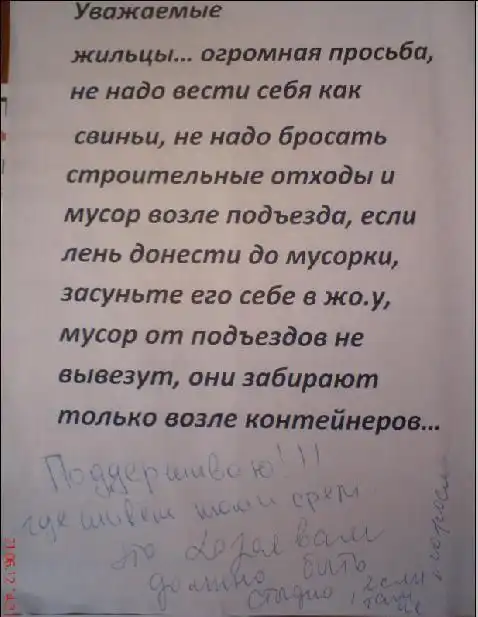 Уважаемые
жильцы... огромная просьба,
не надо вести себя как
свиньи, не надо бросать
строительные отходы и
мусор возле подъезда, если
лень донести до мусорки,
засуньте его себе в жо.у,
мусор от подъездов не
вывезут, они забирают
только возле контейнеров...
Поддерживаю!!!
где живем
это вам
должно быть
стыдно, если